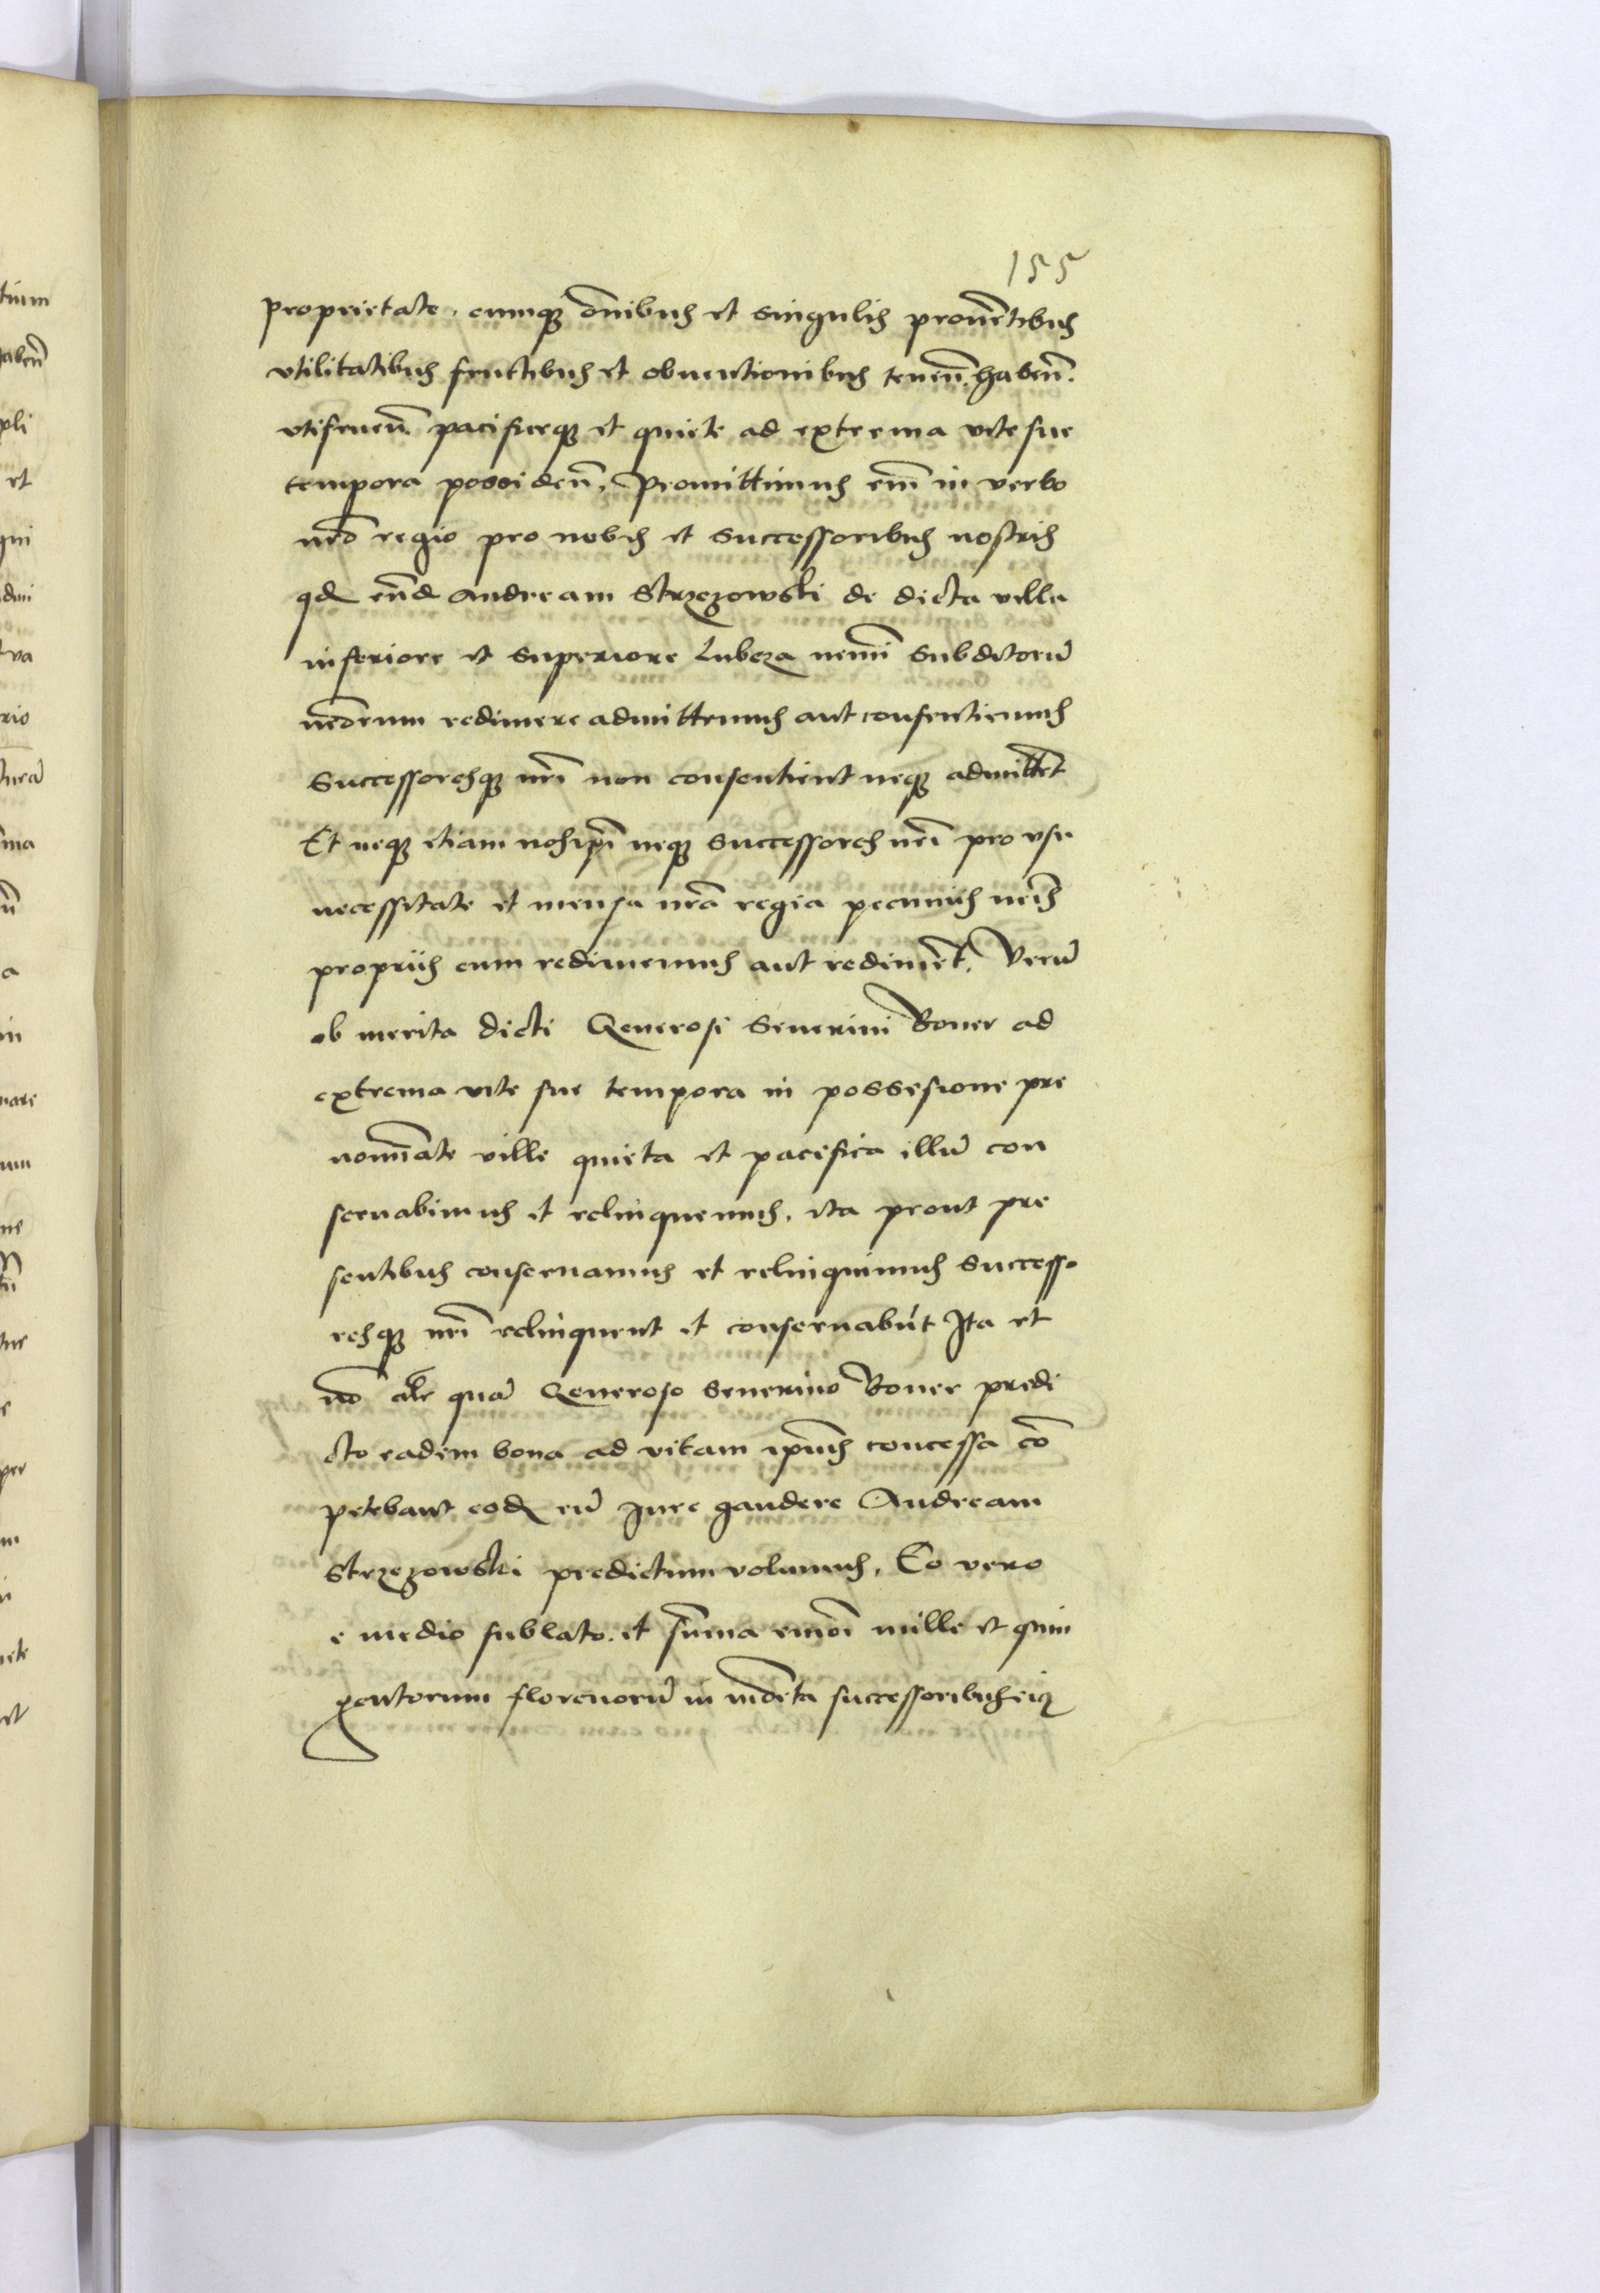 155
proprietate, cumq̃ om̃ibus et singulis prouẽtibus
vtilitatibus fructibus et obuentionibus teneñ. habeñ.
vtifrueñ pacificeq̃ et quiete ad extrema vite sue
tempora possideñ, Promittimus em̃ in verbo
nr̃o regio pro nobis et successoribus nostris
qd eund̃ Andream Strzezowski de dicta villa
inferiore et superiore Lubcza nemini subditorũ
nr̃orum redimere admittemus aut consentiemus
Successoresq̃ nr̃i non consentient neq̃ admittẽt
Et neq̃ etiam nos ip̃i neq̃ successores nr̃i pro vsu
necessitate et mensa nr̃a regia pecuniis nr̃is
propriis eum redimemus aut rediment, Verũ
ob merita dicti Generosi Seuerini Boner ad
extrema vite sue tempora in possesione pre
nomĩate ville quieta et pacifica illũ con
seruabimus et relinquemus, ita prout pre
sentibus conseruamus et relinquimus Successo
resq̃ nr̃i relinquent et conseruabũt Ita et
nõ alr̃ quã Generoso Seuerino Boner predi
cto eadem bona ad vitam ip̃ius concessa cõ
petebant eod eũ Jure gaudere Andream
Strzezowski predictum volumus, Eo vero
e medio sublato, et sum̃a em̃oi mille et quin
gentorum florenorũ in mõeta successoribus eiꝰ